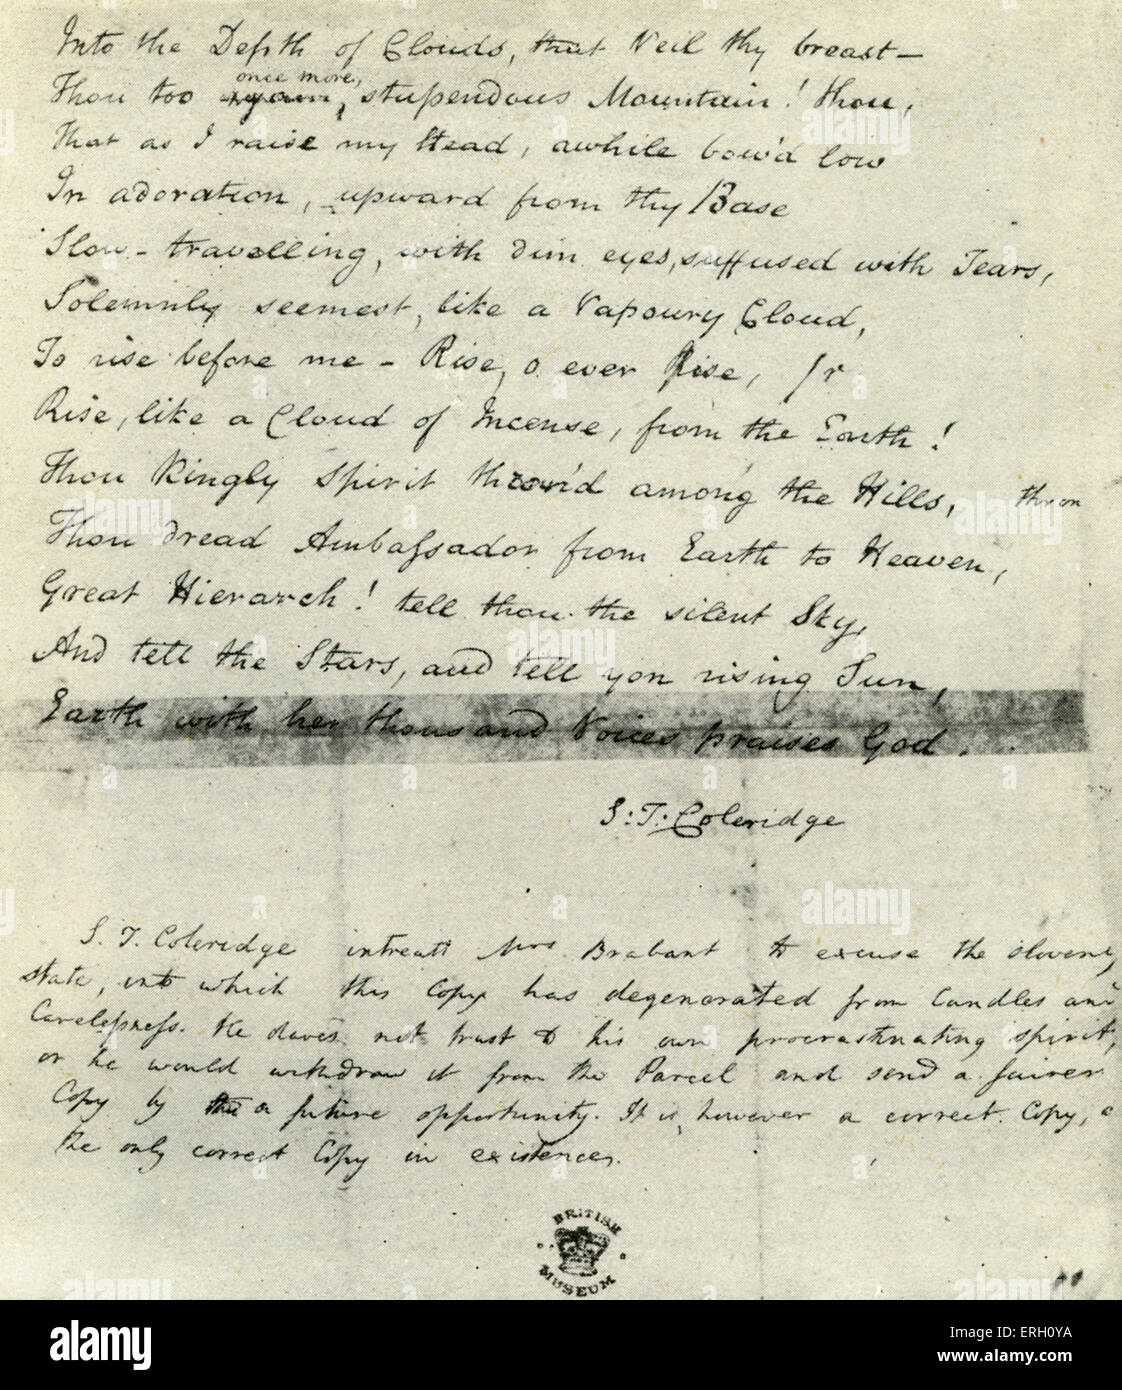 Into the Depth of Clouds, that Veil thy breast—
once more,
Thou too again, stupendous Mountain! thou,
That as I raise my Head, awhile bow'd low
In adoration, upward from thy Base
Slow-travelling, with dim eyes, suffused with Tears,
Solemnly seemest, like a Vapoury Cloud,
To rise before me – Rise, o ever Rise, /r
Rise, like a Cloud of Incense, from the Earth!
Thou Kingly Spirit thron'd among the Hills, thron
Thou dread Ambassador from Earth to Heaven,
Great Hierarch! tell thou the silent Sky,
And tell the Stars, and tell yon rising Sun,
Earth with her thousand Voices praises God.
S: T. Coleridge
S. T. Coleridge intreats Mrs Brabant to excuse the slovenly
state, into which this Copy has degenerated from Candles and
Carelessness. He dares not trust to his own procrastinating spirit,
or he would withdraw it from the Parcel and send a fairer
Copy by a future opportunity. It is, however a correct Copy,
the only correct Copy in existence.
BRITISH
MUSEUM
alamy
Image ID: ERH0YA
www.alamy.com